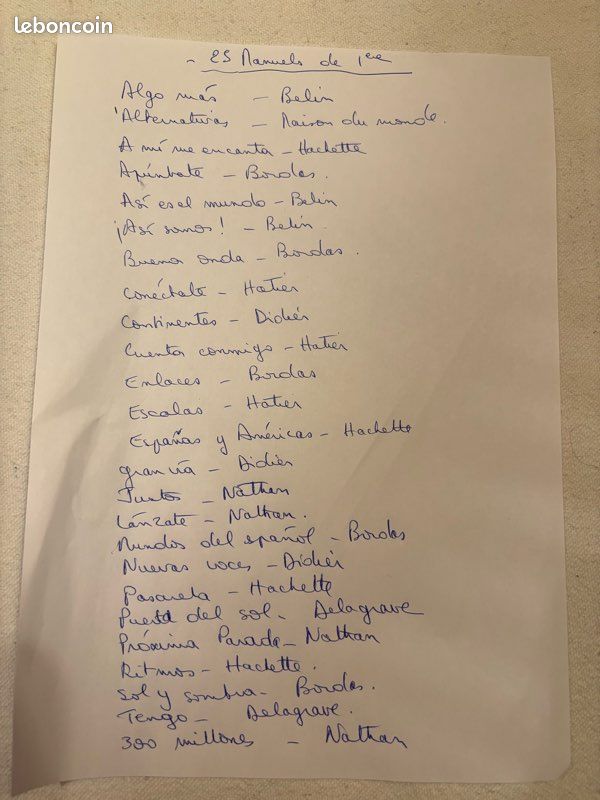 leboncoin
- 25 Manuels de 1ere
Algo más - Belin
Alternativas - Maison du monde.
A mí me encanta - Hachette
Apúntate - Bordas.
Así es el mundo - Belin
¡Así somos! - Belin.
Buena onda - Bordas.
Conéctate - Hatier
Continentes - Didier
Cuenta conmigo - Hatier
Enlaces - Bordas
Escalas - Hatier
Españas y Américas - Hachette
gran vía - Didier
Juntos - Nathan
Lánzate - Nathan.
Mundos del español - Bordas
Nuevas voces - Didier
Pasarela - Hachette
Puerta del sol - Delagrave
Próxima Parada - Nathan
Ritmos - Hachette.
Sol y sombra - Bordas.
Tengo - Delagrave.
300 millones - Nathan